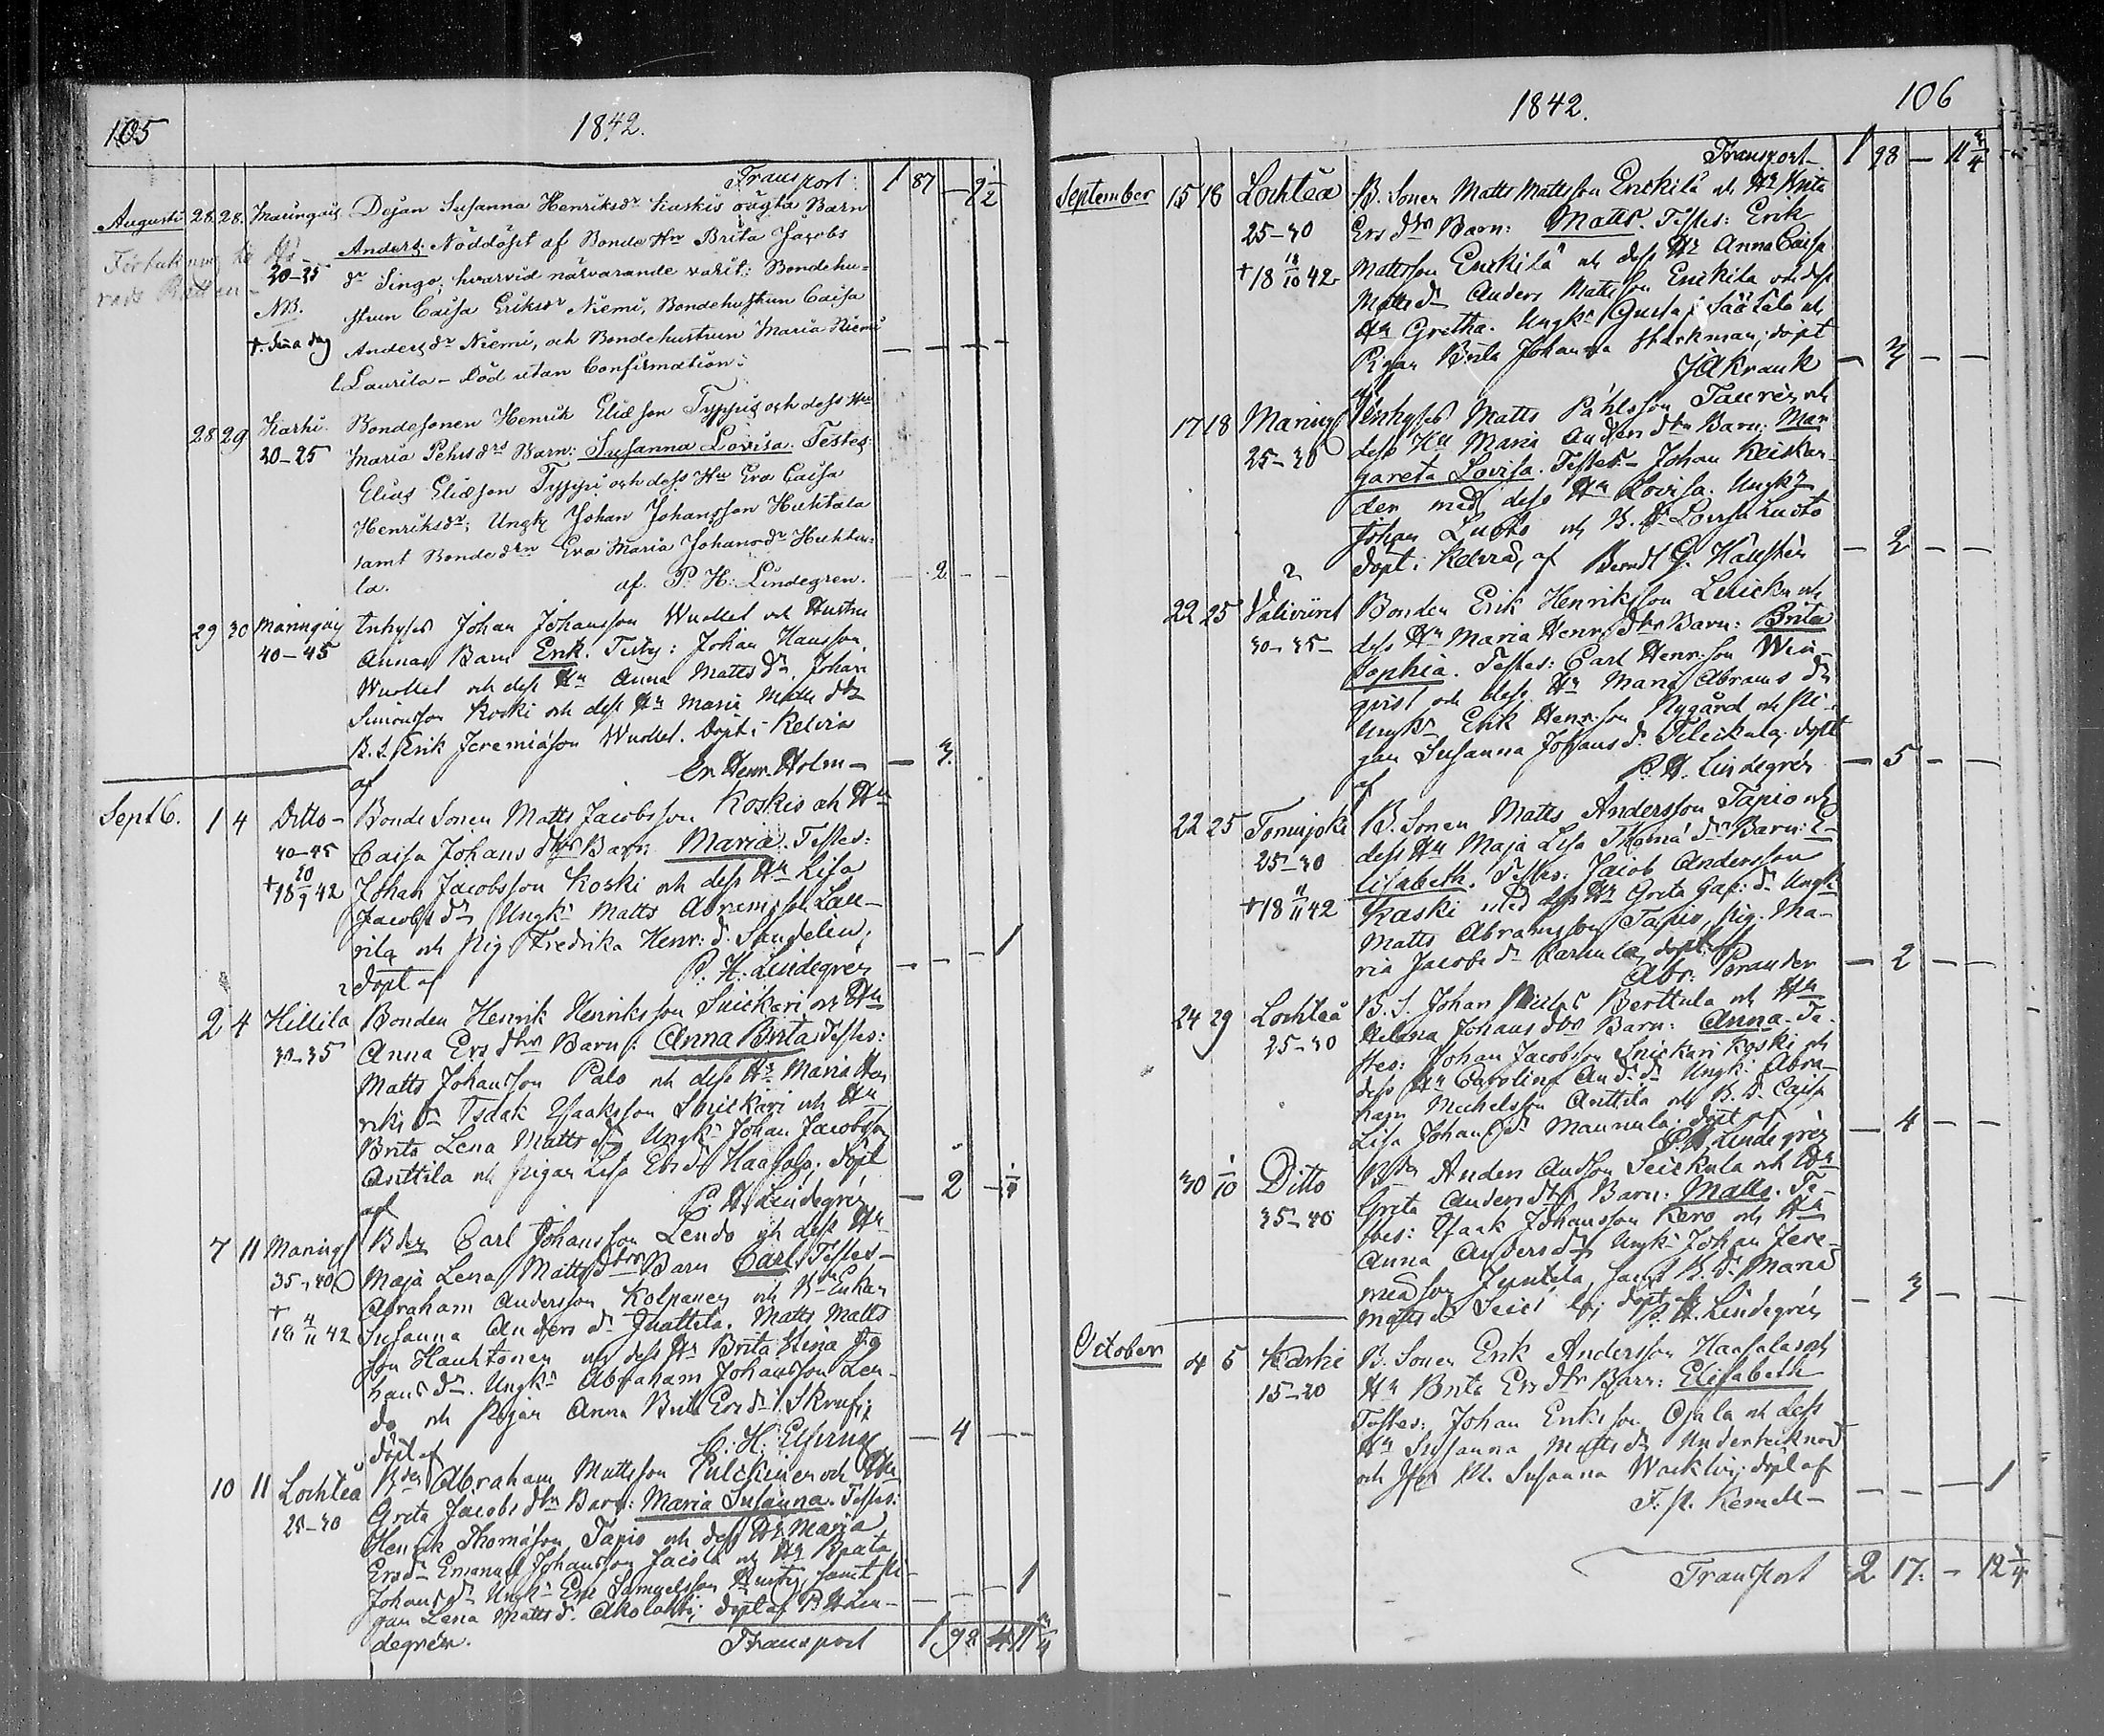 105
1842.
Transport: 1 87 — 9 1/2
Augusti 28. 28. Maringais Dejan Susanna Henriksdr Kaskis oägta Barn
20–25 Anders. Nöddöpt af Bonde Hu Brita Jacobs
NB. dr Singo; hvarvid närvarande varit: Bondehu-
strun Caisa Eriksdr Niemi, Bondehustrun Caisa
†. sama dag Andersdr Niemi, och Bondehustrun Maria Niemi
Laurila – död utan Confirmation.
28 29 Karhi. Bondesonen Henrik Eliæson Typpis och dess Hu
20–25 Maria Pehrsdrs Barn: Susanna Lovisa. Testes
Elias Eliæson Typpi och dess Hu Eva Caisa
Henriksdr; Ungk Johan Johansson Huhtala
samt Bondedrn Eva Maria Johansdr Huhta-
la. af P. H. Lindegren. — 2 — —
29 30 Maringais Inhyses Johan Johansson Wuollet och Hustru
40–45 Annas Barn Erik. Testes: Johan Hansson
Wuollet och dess Hu Anna Mattsdr, Johan
Simonsson Koski och dess Hu Maria Mattsdr
B.S. Erik Jeremiæson Wuollet. Döpt i Kelvio
af Er. Henr. Holm — — 3.
Sept 6. 1 4 Ditto – Bonde Sonen Matts Jacobsson Koskis och Hu
40–45 Caisa Johansdrs Barn Maria. Testes:
† 18 20/9 42 Johan Jacobsson Koski och dess Hu Lisa
Jacobsdr Ungk. Matts Abramsson Lau-
rila och Pig Fredrika Henr: d. Sandelin;
döpt af P. H. Lindegren — — — 1
2 4 Hillilä Bonden Henrik Henriksson Snickari och Hu
30–35 Anna Ersdrs Barn: Anna Brita. Testes:
Matts Johansson Palo och dess Hu Maria Hen
riksdr Isaak Isaaksson Snickari och Hu
Brita Lena Mattsdr Ungk. Johan Jacobsson
Anttila och Pigan Lisa Ersdr Haasala. döpt
af P. H. Lindegrén — 2 —
7 11 Marings Bden Carl Johansson Lendo och dess Hu
35–40 Maja Lena Mattsdrs Barn Carl. Testes –
† Abraham Andersson Kolpanen och Enkan
18 4/11 42 Susanna Andersdr Junttila. Matts Matts
son Hauhtonen och dess Hu Brita Stina Jo
hansdr. Ungk. Abraham Johansson Len-
do och Pigan Anna Brita Ersdr Skruf;
döpt af C. H. Elfving — 4 — —
10 11 Lochteå Bden Abraham Mattsson Pulckinen och Hu
25–30 Greta Jacobsdrs Barn: Maria Susanna. Testes:
Henrik Thomasson Tapio och dess Hu Maria
Ersdr Emanuel Johansson Jacola och Hu Beata
Johansdr Ungk. Eric Samuelsson samt Pi-
gan Lena Mattsdr. Akolahti; döpt af P H Lin- — — — 1
degrén. Transport 1 98 11 3/4
1842.
106
Transport 1 98 — 11 3/4
September 15 18 Lochteå B. Sonen Matts Mattsson Enckilä och Hu Brita
25–30 Ersdrs Barn: Matts. Testes: Erik
† 18 18/10 42 Mattsson Enckilä och dess Hu Anna Caisa
Mattsdr Anders Mattsson Enckilä och dess
Hu Gretha. Ungk. Gustaf Säätelä och
Pigan Brita Johanna Starkman; döpt
af J A Krank — 3 — —
17 18 Marings Inhyses Matts Påhlsson Taurén och
25–30 dess Hu Maria Andersdrs Barn: Mar
gareta Lovisa. Testes – Johan Keiskan-
den med dess Hu Lovisa. Ungk
Johan Luoto och B. dr Lovisa Luoto
döpt i Kelviå, af Berndt G. Hällstén — 2 — —
22 25 Välivüret Bonden Erik Henriksson Leuicku och
30–35 – dess Hu Maria Henr. Drs Barn: Brita
Sophia. Testes: Carl Henr: son Win-
qvist och dess Hu Maria Abrams dr
Ungk. Erik Henr: son Nygård och Pi-
gan Susanna Johansd. Fleickala; döpt
af P. H. Lindegrén — 5 — —
22 25 Tomujoki B. Sonen Matts Andersson Tapio och
25–30 dess Hu Maja Lisa Thomædrs Barn: E-
lisabeth. Testes: Jacob Andersson
† 18 11/11 42 Kaski med dess Hu Greta Gab: dr Ungk.
Matts Abramsson Tapio, Pig. Ma-
ria Jacobsdr Karhula, döpt af
Abr: Perander — 2 — —
24 29 Lochteå B. S. Johan Berttula och Hu
25–30 Helena Johansdrs Barn: Anna. Te-
stes: Johan Jacobsson Snickari Koski och
dess Hu Carolina And. dr Ungk. Abra-
ham Michelsson Anttila och B. D. Caisa
Lisa Johansdr Maunula; döpt af
P. H. Lindegrén — 4 — —
30 1/10 Ditto Bden Anders Andsson Seickula och Hu
35–40 Greta Andersdrs Barn: Matts. Te-
stes: Isaak Johansson Kero och Hu
Anna Andersdr Ungk. Johan Jere-
miæson Juntila, samt B. D. Maria
Mattsdr döpt af P. H. Lindegrén — 3 — —
October 4 5 Karhi B. Sonen Erik Andersson Haasalas och
15–20 Hu Brita Ersdrs Barn: Elisabeth
Testes: Johan Eriksson Ojala och dess
Hu Susanna Mattsdr Undertecknad
och Jfr M. Susanna Wacklin; döpt af
F. P. Kemell – — — — 1
Transport 2 17. — 12 1/4